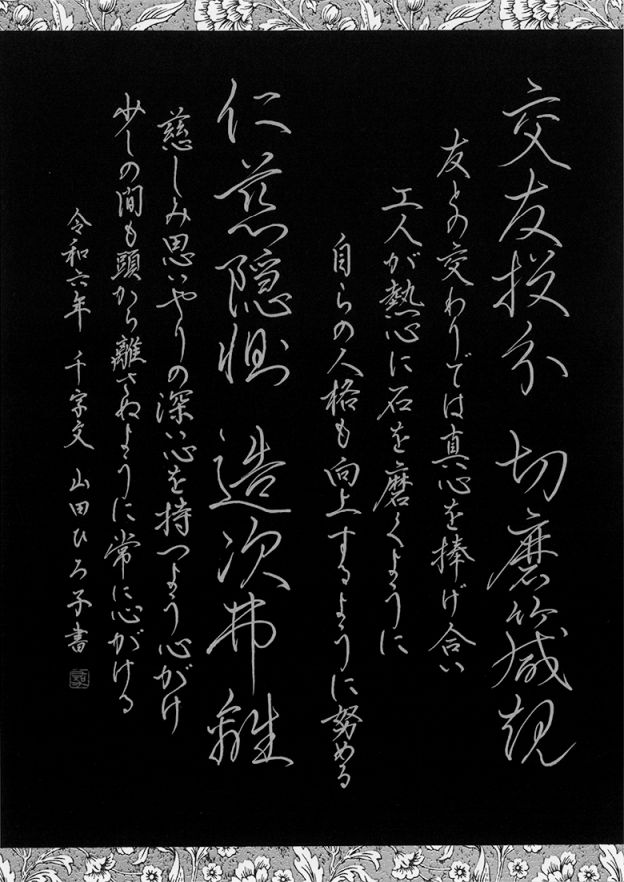 交友投分 切磨箴規
友との交わりでは真心を捧げ合い
工人が熱心に石を磨くように
自らの人格も向上するように努める
仁慈隠惻 造次弗離
慈しみ思いやりの深い心を持つよう心がけ
少しの間も頭から離さぬように常に心がける
令和六年 千字文 山田ひろ子書